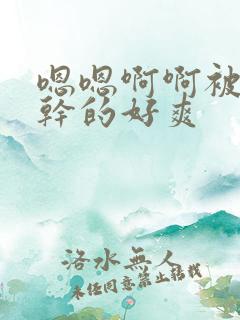 嗯嗯啊啊被
幹的好爽
洛水無人
未任同意禁止轉載